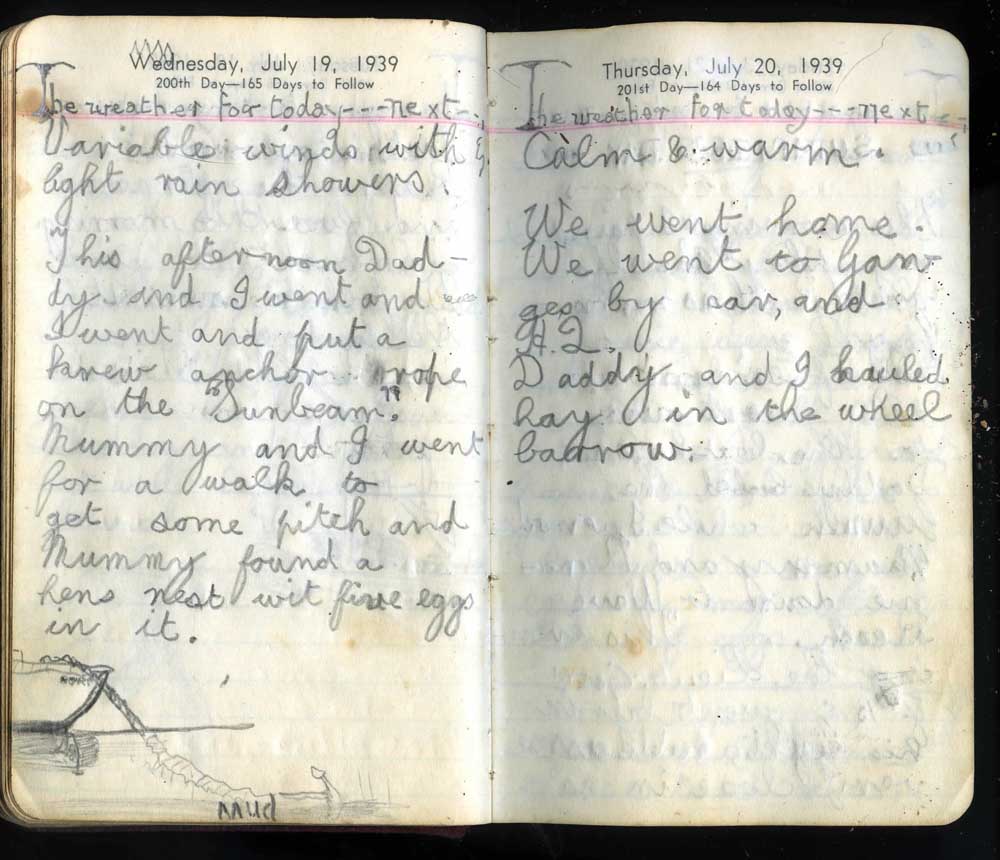 Wednesday, July 19, 1939
200th Day—165 Days to Follow
The weather for today---next--
Variable winds with &
light rain showers.
This afternoon Dad-
dy and I went and
I went and put a
knew anchor rope
on the "Sunbeam".
Mummy and I went
for a walk to
get some pitch and
Mummy found a
hens nest wit five eggs
in it.
Mud
Thursday, July 20, 1939
201st Day—164 Days to Follow
The weather for today---next--
Calm & warm.
We went home.
We went to Gan-
ges by car, and
H.Q.
Daddy and I hauled
hay in the wheel
barrow.